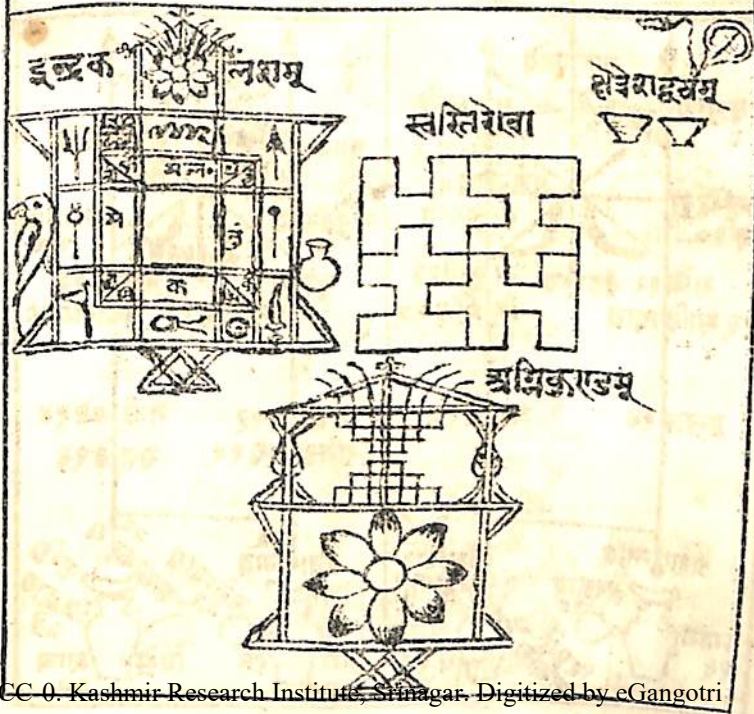 इन्द्रक लशम्
क्षेत्रेशद्वयम्
स्वस्तिरेखा
क
अग्निकुण्डम्
CC-0. Kashmir Research Institute, Srinagar. Digitized by eGangotri